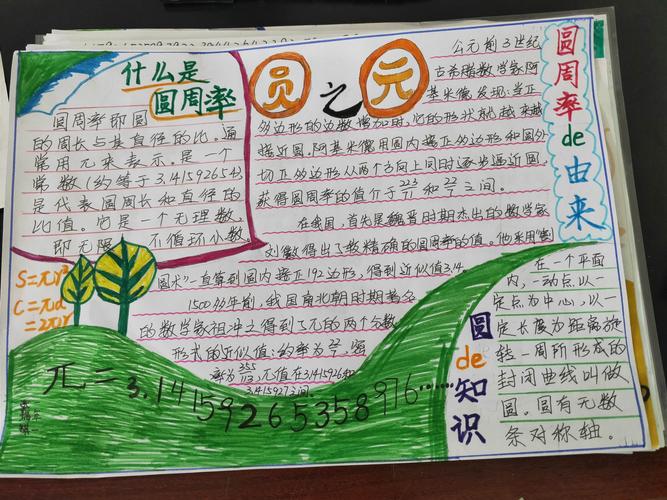 什么是
圆周率
圆周率即圆
的周长与其直径的比。通
常用元来表示。是一个
常数(约等于3.141592654)
是代表圆周长和直径的
比值。它是一个无理数，
即无限不循环小数。
S=πr²
C=πd
=2πr
员之元
圆周率de由来
公元前3世纪
古希腊数学家阿
基米德发现:当正
多边形的边数增加时,它的形状就越来越
接近圆.阿基米德用圆内接正多边形和圆外
切正多边形从两个方向上同时逐步逼近圆,
获得圆周率的值介于223/71和22/7之间.
在我国,首先是魏晋时期杰出的数学家
刘徽得出了较精确的圆周率的值。他采用“割
圆术”一直算到圆内接正192边形,得到近似值3.14.
1500多年前,我国南北朝时期著名
的数学家祖冲之得到了元的两个分数
形式的近似值:约率为22/7,密
率为355/113,元值在3.1415926和
3.1415927之间.
圆de知识
在一个平面
内,一动点以一
定点为中心,以一
定长度为距离旋
转一周所形成的
封闭曲线叫做
圆。圆有无数
条对称轴。
π=3.1415926535897 6……